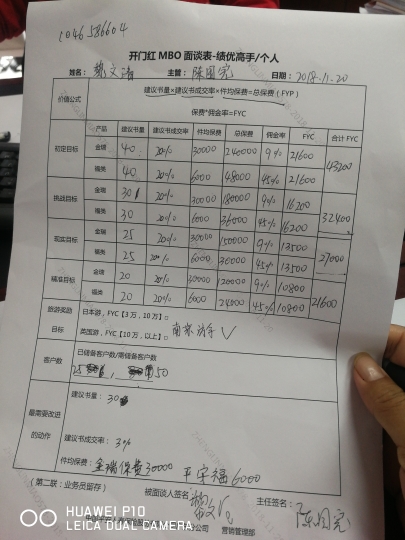 1046586604
开门红MBO面谈表-绩优高手/个人
姓名: 主管: 陈国宪 日期: 2018.11.20
价值公式 建议书量×建议书成交率×件均保费=总保费(FYP)
保费*佣金率=FYC
产品 建议书量 建议书成交率 件均保费 总保费 佣金率 FYC 合计FYC
初定目标 金瑞 40 20% 30000 240000 9% 21600 43200
福类 40 20% 6000 48000 45% 21600
挑战目标 金瑞 30 20% 30000 180000 9% 16200 32400
福类 30 20% 6000 36000 45% 16200
现实目标 金瑞 25 20% 30000 150000 9% 13500 27000
福类 25 20% 6000 30000 45% 13500
精准目标 金瑞 20 20% 120000 9% 10800 21600
福类 20 20% 6000 24000 45% 10800
旅游奖励目标 日本游,FYC【3万,10万】□
英国游,FYC【10万,以上】□ ✓
客户数 已储备客户数/需储备客户数
25 50
最需要改进的动作 建议书量: 30
建议书成交率: 3%
件均保费: 金瑞保费30000 平安福6000
(第二联:业务员留存) 被面谈人签名: 主任签名: 陈国宪
营销管理部
HUAWEI P10
LEICA DUAL CAMERA